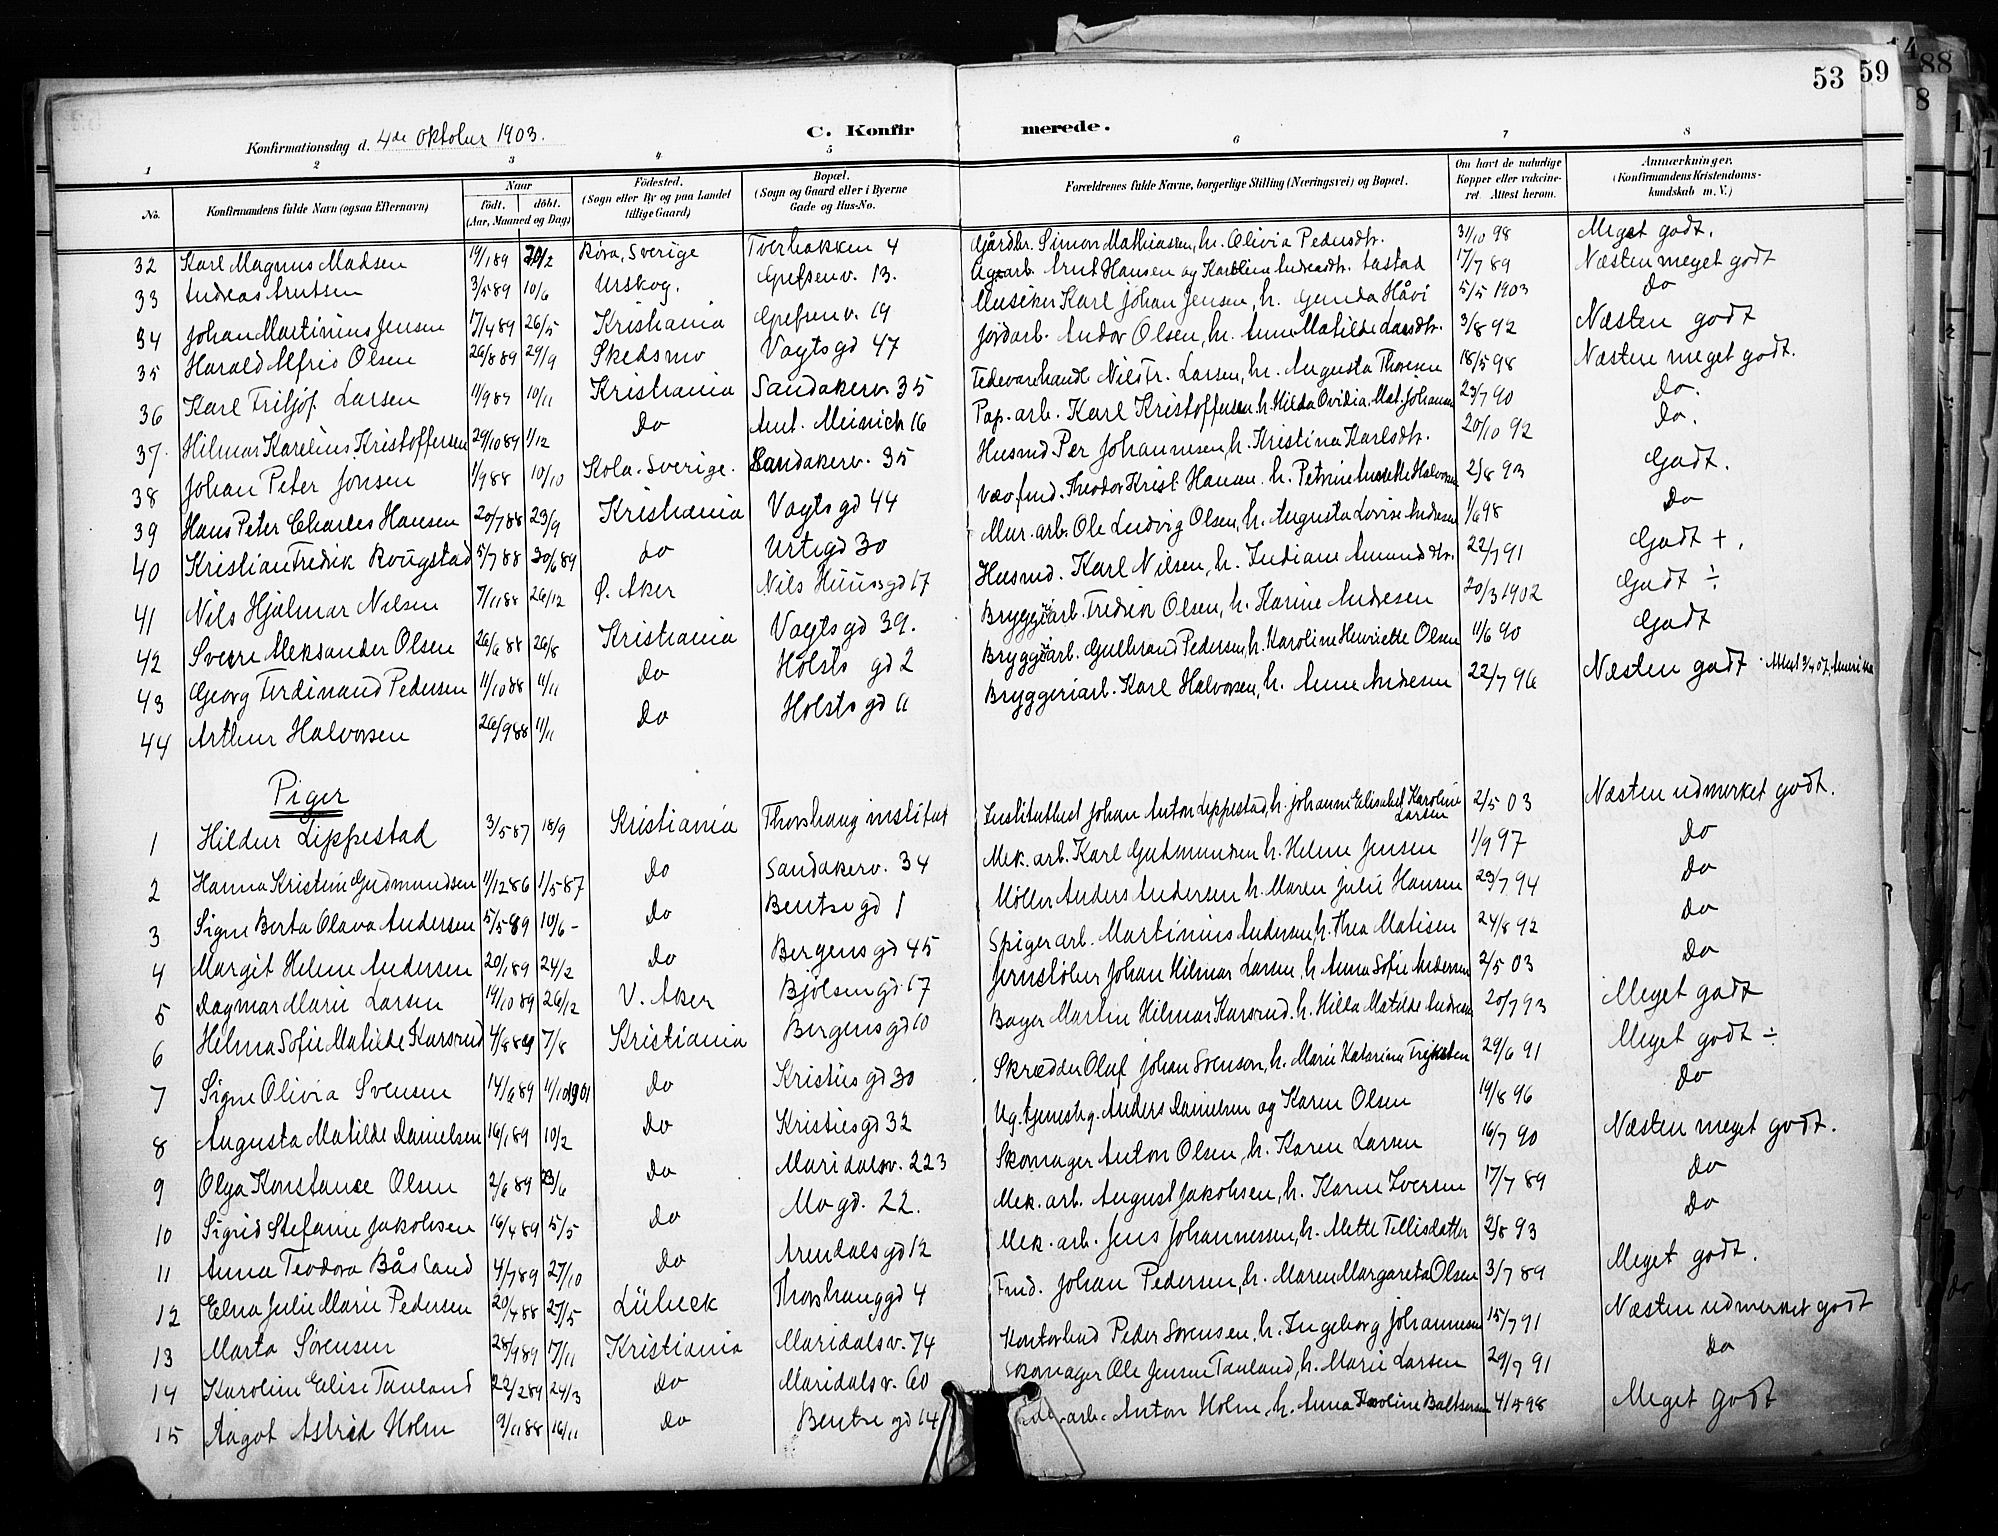 53 59 88
8
Konfirmationsdag d. 4de Oktober 1903.
C. Konfirmerede.
1 2 3 4 5 6 7 8
No. Konfirmandens fulde Navn (ogsaa Efternavn) Naar født. døbt. (Aar, Maaned og Dag) Fødested. (Sogn eller By og paa Landet tillige Gaard) Bopæl. (Sogn og Gaard eller i Byerne Gade og Hus-No. Forældrenes fulde Navne, borgerlige Stilling (Næringsvei) og Bopæl. Om havt de naturlige Kopper eller vaccineret. Attest herom. Anmærkninger. (Konfirmandens Kristendomskundskab m. V.)
32 Karl Magnus Madsen 19/1 89 20/2 Sverige Tverbakken 4 Gårdbr. Simon Mathiassen, h. Olivia Pedersdtr. 31/10 98 Meget godt.
33 Andreas Arntsen 3/5 89 10/6 Urskog. Grefsenv. 13. Arnt Hansen og Karoline Andreasdtr. 17/7 89 Næsten meget godt
34 Johan Martinius Jensen 17/4 89 26/5 Kristiania Grefsenv. 19 Musiker Karl Johan Jensen, h. Gunda Håvi 5/5 1903 Do
35 Harald Alfrid Olsen 26/8 89 29/9 Skedsmo Vogts gd 47 Jordarb. Andor Olsen, h. Anne Matilde Larsdtr. 3/8 92 Næsten godt
36 Karl Fritjof Larsen 11/9 89 10/11 Kristiania Sandakerv. 35 Fedevarehandl. Nils Fr. Larsen, h. Augusta Thoresen 18/5 98 Næsten meget godt.
37. Hilmar Karelius Kristoffersen 29/10 89 1/12 Do Ant. Meinich 16 Pap. arb. Karl Kristoffersen h. Hilda Ovidia Mat. Johansen 23/7 90 Do.
38 Johan Peter Jonsen 1/9 88 10/10 Kola. Sverige. Sandakerv. 35 Husmd Per Johannesen, h. Kristina Karlsdtr. 20/10 92 Do.
39 Hans Peter Charles Hansen 20/7 88 23/9 Kristiania Vogts gd 44 Theodor Krist Hansen h. Petrine Annette Halvorsen 2/8 93 Godt.
40 Kristian Fredrik Rougstad 5/7 88 30/6 89 Do Urtegd 30 Mur. arb. Ole Ludvig Olsen, h. Augusta Lovise Andresen 1/6 98 Do
41 Nils Hjalmar Nilsen 7/11 88 26/12 Ø. Aker Nils Huus gd 17 Husmd. Karl Nilsen, h. Indiane Amundsdtr. 22/7 91 Godt +.
42 Sverre Aleksander Olsen 26/6 88 26/8 Kristiania Vogts gd 39. Bryggeriarb. Fredrik Olsen, h. Karine Andresen 20/3 1902 Godt ÷
43 Georg Ferdinand Pedersen 11/10 88 11/11 Do Holsts gd 2 Bryggeriarb. Gulbrand Pedersen, h. Karoline Henriette Olsen 11/6 90 Godt
44 Arthur Halvorsen 26/9 88 11/11 Do Holsts gd 11 Bryggeriarb. Karl Halvorsen, h. Anne Andresen 22/7 96 Næsten godt. Attest 3/4 07. Amerika
Piger
1 Hildur Lippestad 3/5 87 18/9 Kristiania Thorshaug institut Institutbest Johan Anton Lippestad, h. Johanne Elisabet Karoline Larsen 2/5 03 Næsten udmerket godt.
2 Hanna Kristine Gudmundsen 11/12 86 1/5 87 Do Sandakerv. 34 Mek. arb. Karl Gudmundsen h. Helene Jensen 1/9 97 Do
3 Signe Berta Olava Andersen 5/5 89 10/6 - Do Bentse gd 1 Møller Anders Andersen h. Maren Julie Hansen 23/7 94 Do
4 Margit Helene Andersen 20/1 89 24/2 Do Bergens gd 45 Spigerarb. Martinius Andersen, h. Thea Matisen 24/8 92 Do
5 Dagmar Marie Larsen 19/10 89 26/12 V. Aker Bjølsen gd 17 Jernstøber Johan Hilmar Larsen, h Anna Sofie Andersen 2/5 03 Do
6 Hilma Sofie Matilde Karsrud 4/8 89 7/8 Kristiania Bergens gd 10 Bager Martin Hilmar Karsrud. h. Hilda Matilde Andresen 20/7 93 Meget godt
7 Signe Olivia Svensen 14/6 89 11/10 1901 Do Kristies gd 30 Skrædder Oluf Johan Svenson, h. Marie Katarina 29/6 91 Meget godt ÷
8 Augusta Matilde Danielsen 16/1 89 10/2 Do Kristies gd 32 Ug. tjenestg. Anders Danielsen og Karen Olsen 19/8 96 Do
9 Olga Konstance Olsen 2/6 89 23/6 Do Maridalsv. 223 Skomager Anton Olsen, h. Karen Larsen 16/7 90 Næsten meget godt.
10 Sigrid Stefanie Jakobsen 16/4 89 5/5 Do Mo gd. 22. Mek. arb. August Jakobsen, h. Karen Iversen 17/7 89 Do
11 Anna Teodora Båsland 4/7 89 27/10 Do Arendals gd 12 Mek. arb. Jens Johannessen, h. Mette Tellisdatter 2/8 93 Do
12 Elna Julie Marie Pedersen 20/4 88 27/5 Lübeck Thorshaug gd 4 Fmd. Johan Pedersen, h. Maren Margareta Olsen 3/7 89 Meget godt.
13 Marta Sørensen 28/9 89 17/11 Kristiania Maridalsv. 74 Kontorbud Peder Sørensen, h. Ingeborg Johannesen 15/7 91 Næsten udmerket godt
14 Karoline Elise Tanland 22/2 89 24/3 Do Maridalsv. 60 Skomager Ole Jensen Tanland, h. Marie Larsen 29/7 91 Do
15 Aagot Astrid Holm 9/11 88 16/11 Do Bentse gd 14 arb. Anton Holm, h. Anna Karoline Baltsersen 4/5 98 Meget godt